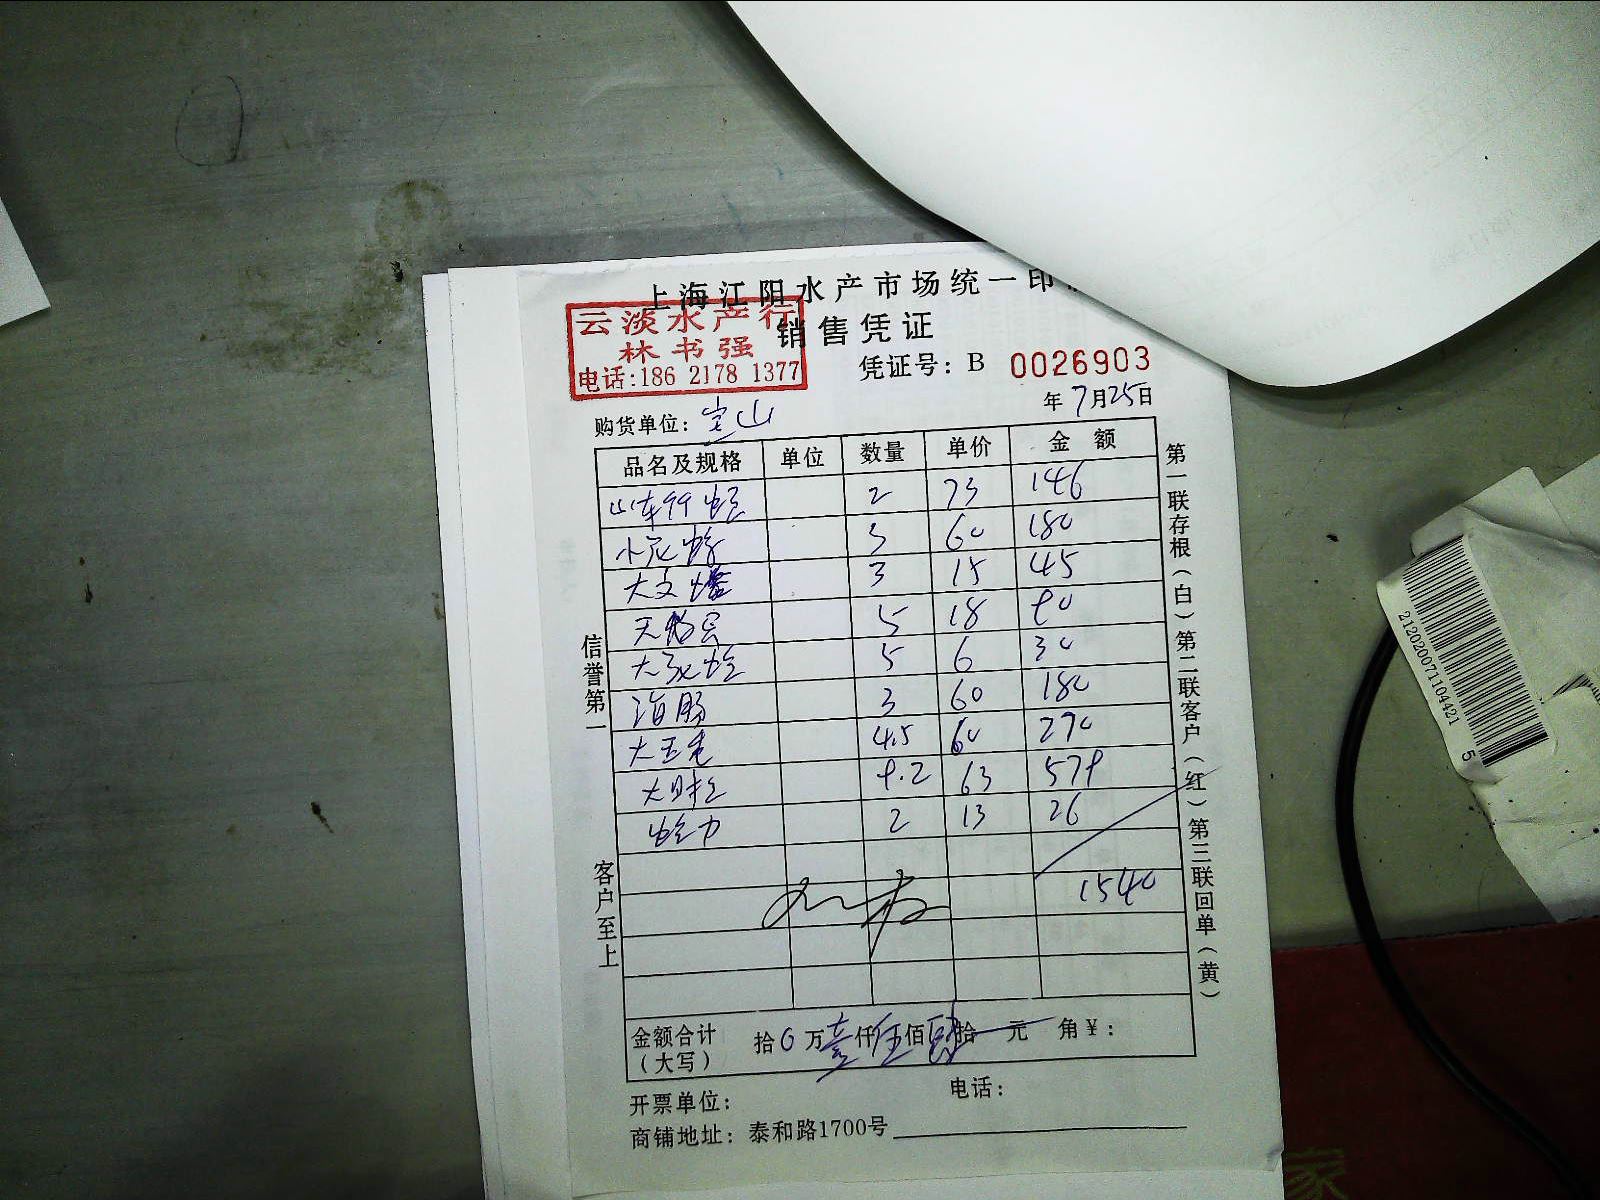 上海江阳水产市场统一印
销售凭证
云淡水产行
林书强
电话:186 2178 1377
凭证号: B 0026903
年 7月25日
购货单位: 宝山
品名及规格 单位 数量 单价 金额
山东 2 73 146
小 3 60 180
大 3 15 45
5 18 90
大 5 6 30
海肠 3 60 180
大 4.5 60 270
大 9.2 63 579
2 13 26
1540
金额合计（大写） 拾0万壹仟伍佰肆拾元 角¥:
开票单位: 电话:
商铺地址: 泰和路1700号
信誉第一
客户至上
第一联存根(白)第二联客户(红)第三联回单(黄)
2120200711044215
家